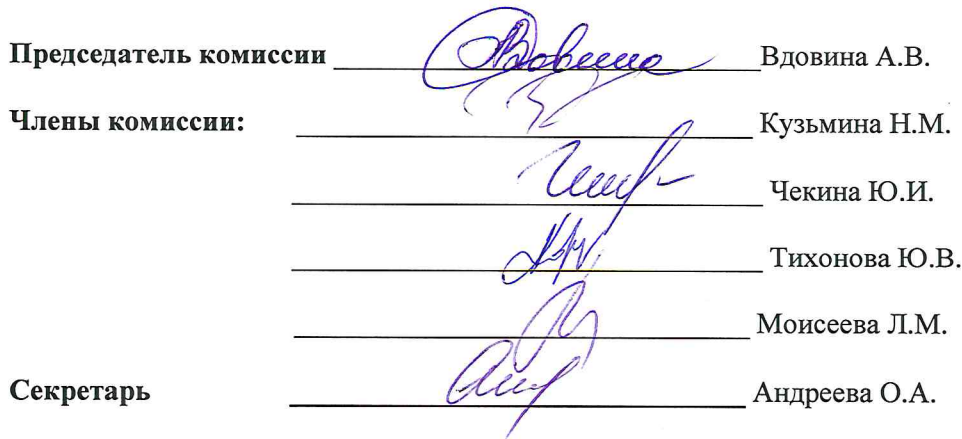 Председатель комиссии Вдовина А.В.
Члены комиссии: Кузьмина Н.М.
Чекина Ю.И.
Тихонова Ю.В.
Моисеева Л.М.
Секретарь Андреева О.А.